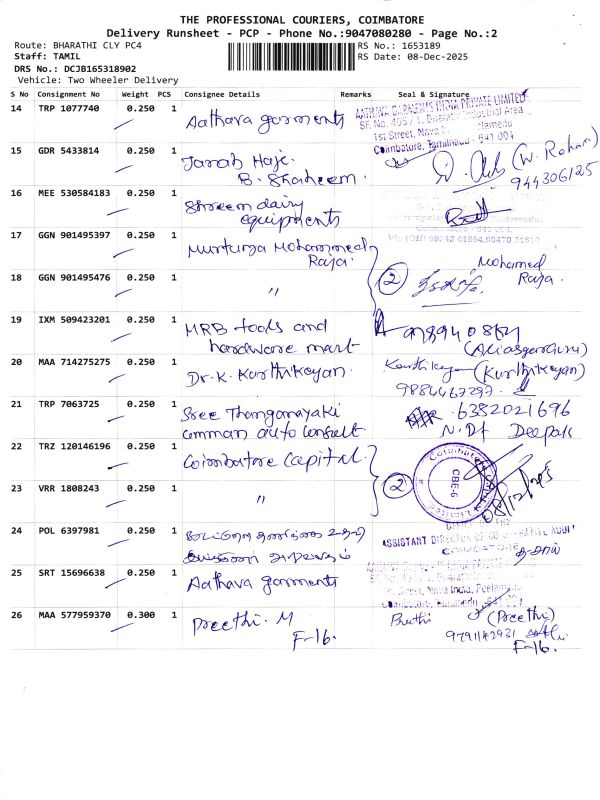 THE PROFESSIONAL COURIERS, COIMBATORE
Delivery Runsheet - PCP - Phone No.:9047080280 - Page No.:2
Route: BHARATHI CLY PC4 RS No.: 1653189
Staff: TAMIL RS Date: 08-Dec-2025
DRS No.: DCJB165318902
Vehicle: Two Wheeler Delivery
S No Consignment No Weight PCS Consignee Details Remarks Seal & Signature
14 TRP 1077740 0.250 1 Aathava garments
AATHAVA GARMENTS INDIA PRIVATE LIMITED
1st Street, Nava
Coimbatore, Tamilnadu 641 004
15 GDR 5433814 0.250 1
B. Shaheem (W. Rohan)
944306125
16 MEE 530584183 0.250 1 Shreem dairy
equipments
17 GGN 901495397 0.250 1 Murtuza Mohammed
Raja. Mohamed
Raja.
18 GGN 901495476 0.250 1 〃 2
19 IXM 509423201 0.250 1 MRB tools and
hardware mart
20 MAA 714275275 0.250 1 Dr. K. Karthikeyan. (Karthikeyan)
9884467297
21 TRP 7063725 0.250 1 Sree Thanganayaki 6382021696
comman auto consult Deepak
22 TRZ 120146196 0.250 1 Coimbatore Capital
CBE-6
23 VRR 1808243 0.250 1 〃 2
24 POL 6397981 0.250 1
ASSISTANT DIRECTOR OF
25 SRT 15696638 0.250 1 Aathava garments
Street, Nava India, Peelamedu
26 MAA 577959370 0.300 1 Preethi. M Preethi (Preethi)
F-16. 9791142931
F-16.